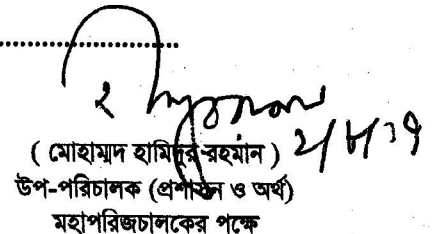 ( মোহাম্মদ হামিদুর রহমান )
উপ-পরিচালক (প্রশাসন ও অর্থ)
মহাপরিজচালকের পক্ষে